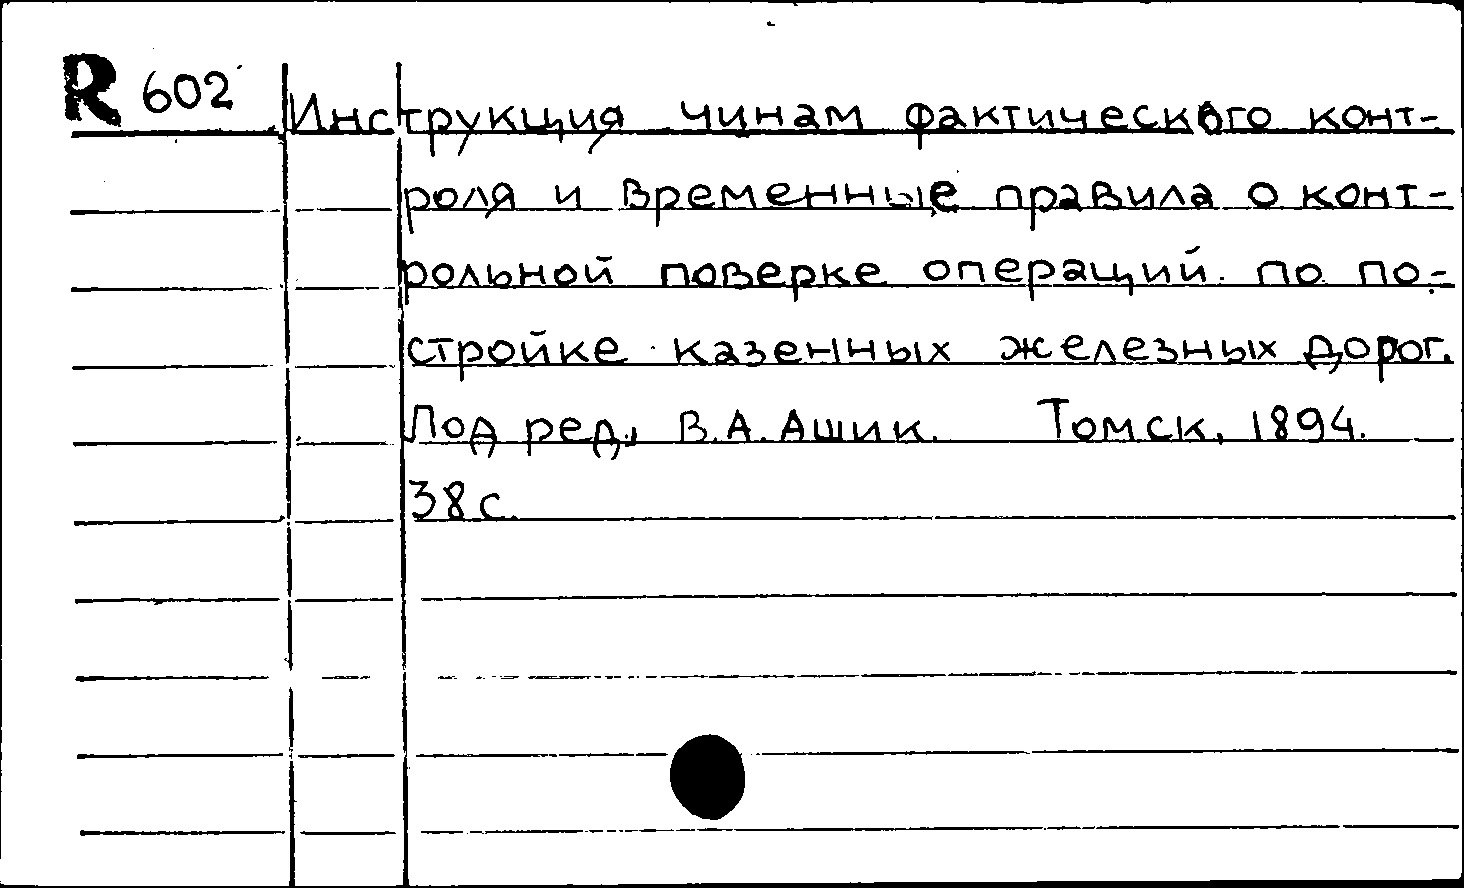 R 602
Инструкция чинам фактического конт-
роля и временные правила о конт-
рольной поверке операций по по-
стройке казенных железных дорог.
Под ред. В.А. Ашик. Томск, 1894.
38 с.